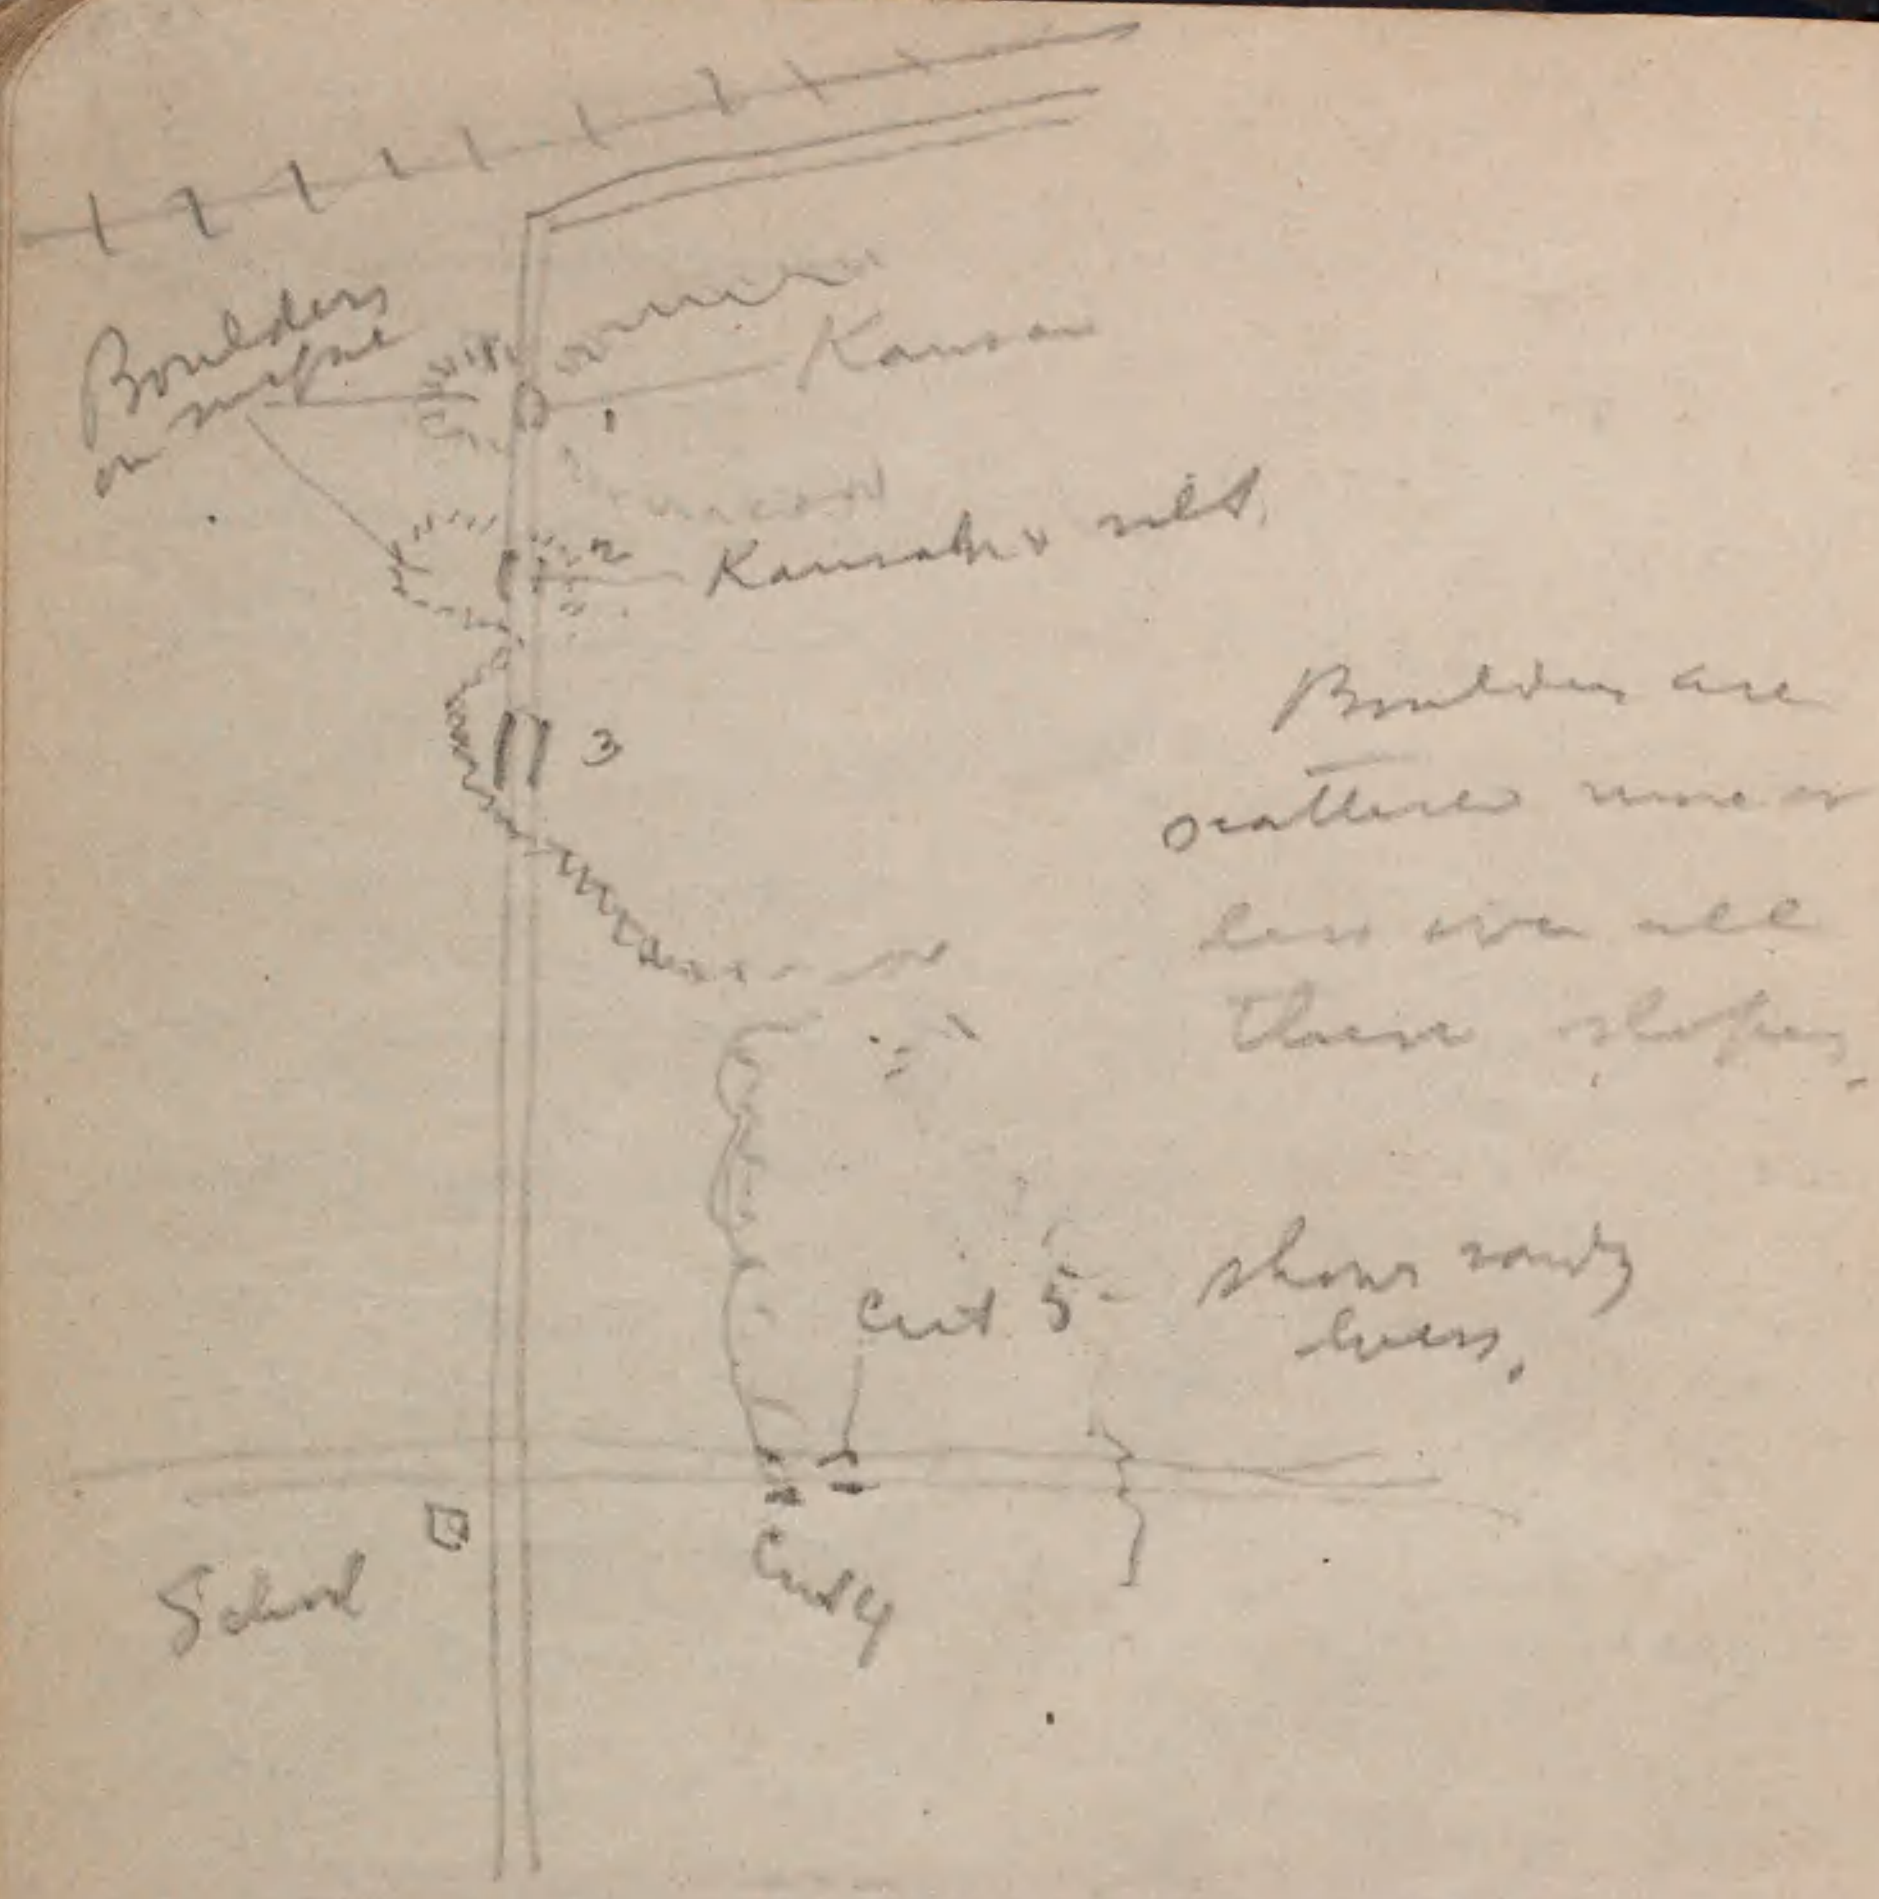 Boulders
on surface
Kansan
1
2
Kansan & silt.
3
Boulders are
scattered more or
less over all
these slopes.
Cut 5 - shows sandy
loess.
School
Cut 4